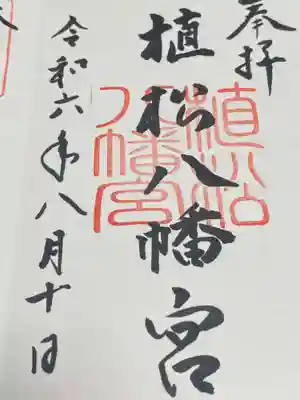 奉拝
植松八幡宮
植松
八幡宮
令和六年八月十日